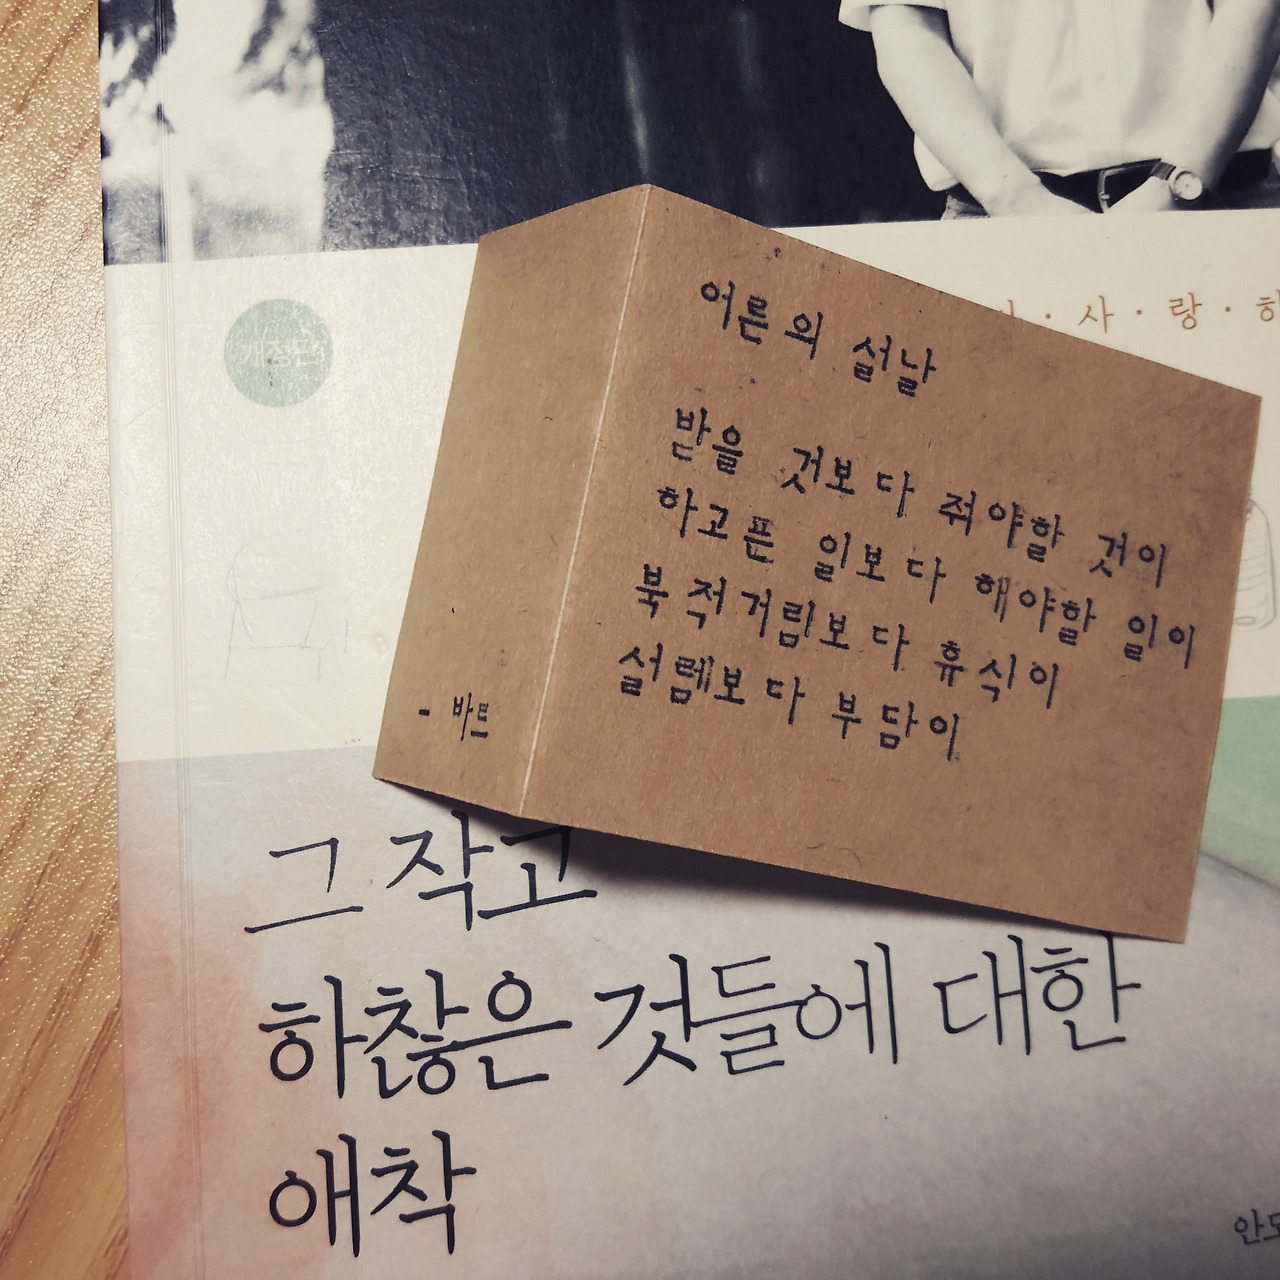 개정판
사·랑·하
어른의 설날
받을 것보다 줘야할 것이
하고픈 일보다 해야할 일이
북적거림보다 휴식이
설렘보다 부담이
- 바트
그 작고
하찮은 것들에 대한
애착
안도